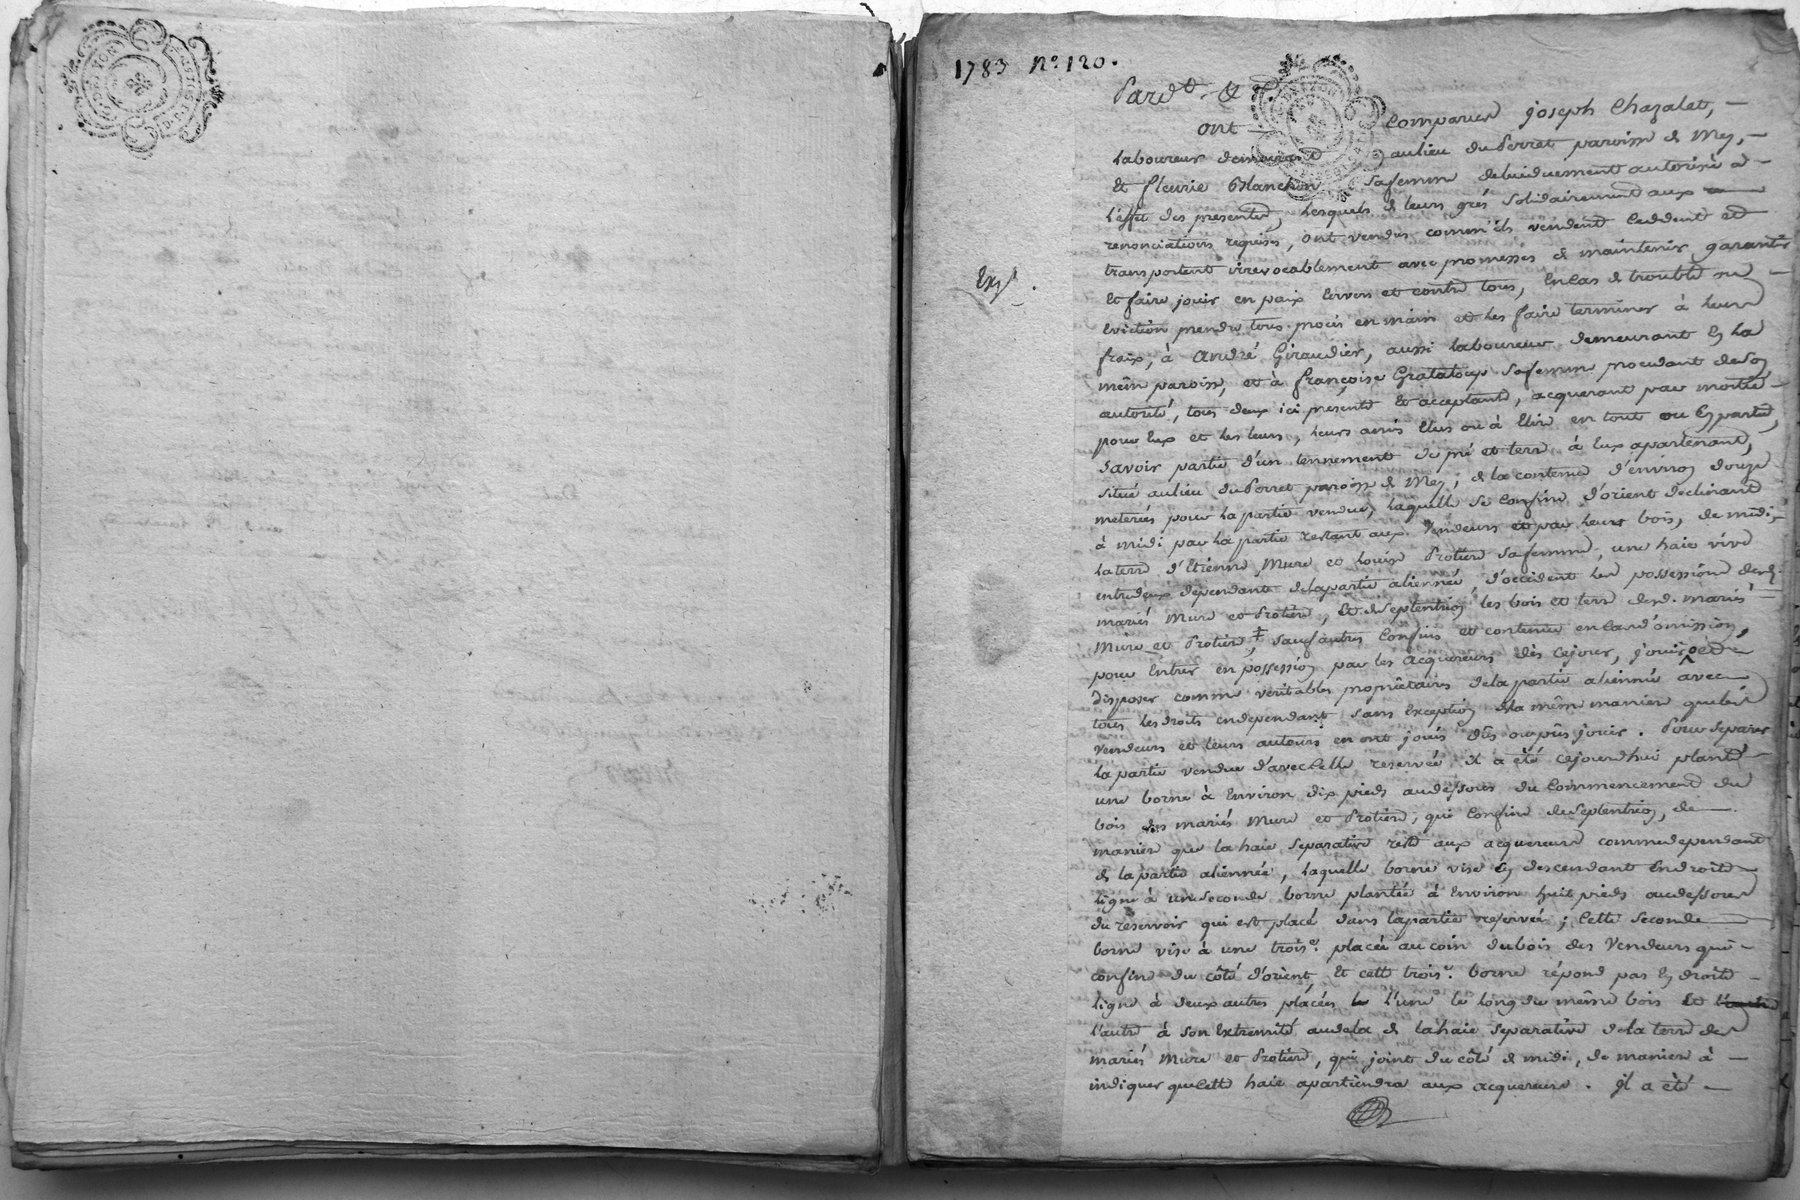 1783 Nº 120.
Pard.t &
ont Comparus joseph Chazalet,
laboureur demeurant au lieu du Perret paroisse de Mey,
et fleurie Blanchon sa femme de lui duement autorisée à
l'effet des presentes, lesquels de leurs grés solidairement aux
renonciations requises, ont vendus comm'ils vendent ceddent et
transportent irrevocablement avec promesses de maintenir garantir
et faire jouir en paix envers et contre tous, en cas de trouble ou
eviction prendre tous procès en mains et les faire terminer à leurs
Exp.
fraix, à andré Giraudier, aussi laboureur demeurant en la
même paroisse, et à françoise Grataloup sa femme procedant de son
autorité, tous deux ici presents et acceptants, acquerant par moitié
pour eux et les leurs, leurs amis elus ou à elire en tout ou en partie,
savoir partie d'un tennement de pré et terre à eux apartenant,
situé au lieu du Perret paroisse de Mey, de la contenue d'environ douze
meterées pour la partie vendue, laquelle se confine d'orient declinant
à midi par la partie restant aux Vendeurs et par leurs bois, de midi,
la terre d'Etienne Mure et Louise Protiere sa femme, une haie vive
entredeux dependant de la partie alienneé, d'occident les possessions desd.
mariés Mure et Protiere, et de septentrion les bois et terre desd. mariés
Mure et Protiere ‡, sauf autres confins et contenue en cas d'omission,
pour entrer en possession par les acquereurs dès ce jour, jouir et
disposer comme veritables propriétaires de la partie aliennée avec
tous les droits en dependant sans exception de la même maniere que les
vendeurs et leurs auteurs en ont jouis dûs ou pûs jouir. Pour separer
la partie vendue d'avec celle reservée il a été cejourdhui planté
une borne à environ dix pieds au dessous du commencement du
bois des mariés Mure et Protiere, qui confine de septentrion, de
maniere que la haie separative reste aux acquereurs comme dependant
de la partie aliennée, laquelle borne vise en descendant en droite
ligne à une seconde borne plantée à environ huit pieds au dessous
du reservoir qui est placé dans la partie reservée; cette seconde
borne vise à une trois.e placée au coin du bois des Vendeurs qui
confine du côté d'orient et cette trois.e borne répond par en droite
ligne à deux autres placées l'une le long du même bois et
l'autre à son extremité au dela de la haie separative de la terre des
mariés Mure et Protiere, qui joint du côté de midi, de maniere à
indiquer que cette haie apartiendra aux acquereurs. Il a été